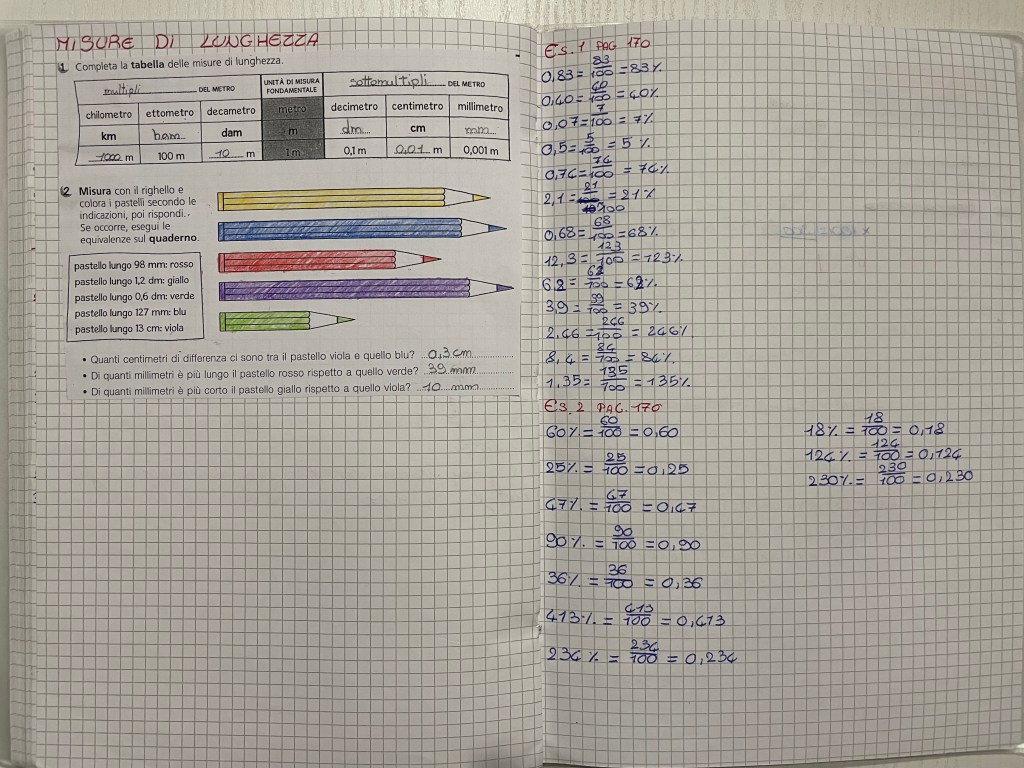 MISURE DI LUNGHEZZA
1 Completa la tabella delle misure di lunghezza.
multipli DEL METRO UNITÀ DI MISURA FONDAMENTALE sottomultipli DEL METRO
chilometro ettometro decametro metro decimetro centimetro millimetro
km dam m dm cm mm
1000 m 100 m 10 m 1 m 0,1 m 0,01 m 0,001 m
2 Misura con il righello e
colora i pastelli secondo le
indicazioni, poi rispondi.
Se occorre, esegui le
equivalenze sul quaderno.
pastello lungo 98 mm: rosso
pastello lungo 1,2 dm: giallo
pastello lungo 0,6 dm: verde
pastello lungo 127 mm: blu
pastello lungo 13 cm: viola
• Quanti centimetri di differenza ci sono tra il pastello viola e quello blu? 0,3 cm
• Di quanti millimetri è più lungo il pastello rosso rispetto a quello verde? 39 mm
• Di quanti millimetri è più corto il pastello giallo rispetto a quello viola? 10 mm
ES. 1 PAG 170
0,83 = 83/100 = 83%
0,40 = 40/100 = 40%
0,07 = 7/100 = 7%
0,5 = 5/100 = 5%
0,74 = 74/100 = 74%
2,1 = 21/100 = 21%
0,68 = 68/100 = 68%
12,3 = 123/100 = 123%
6,2 = 62/100 = 62%
3,9 = 39/100 = 39%
2,46 = 246/100 = 246%
8,4 = 84/100 = 84%
1,35 = 135/100 = 135%
ES. 2 PAG. 170
60% = 60/100 = 0,60
25% = 25/100 = 0,25
47% = 47/100 = 0,47
90% = 90/100 = 0,90
36% = 36/100 = 0,36
413% = 413/100 = 0,413
234% = 234/100 = 0,234
18% = 18/100 = 0,18
124% = 124/100 = 0,124
230% = 230/100 = 0,230